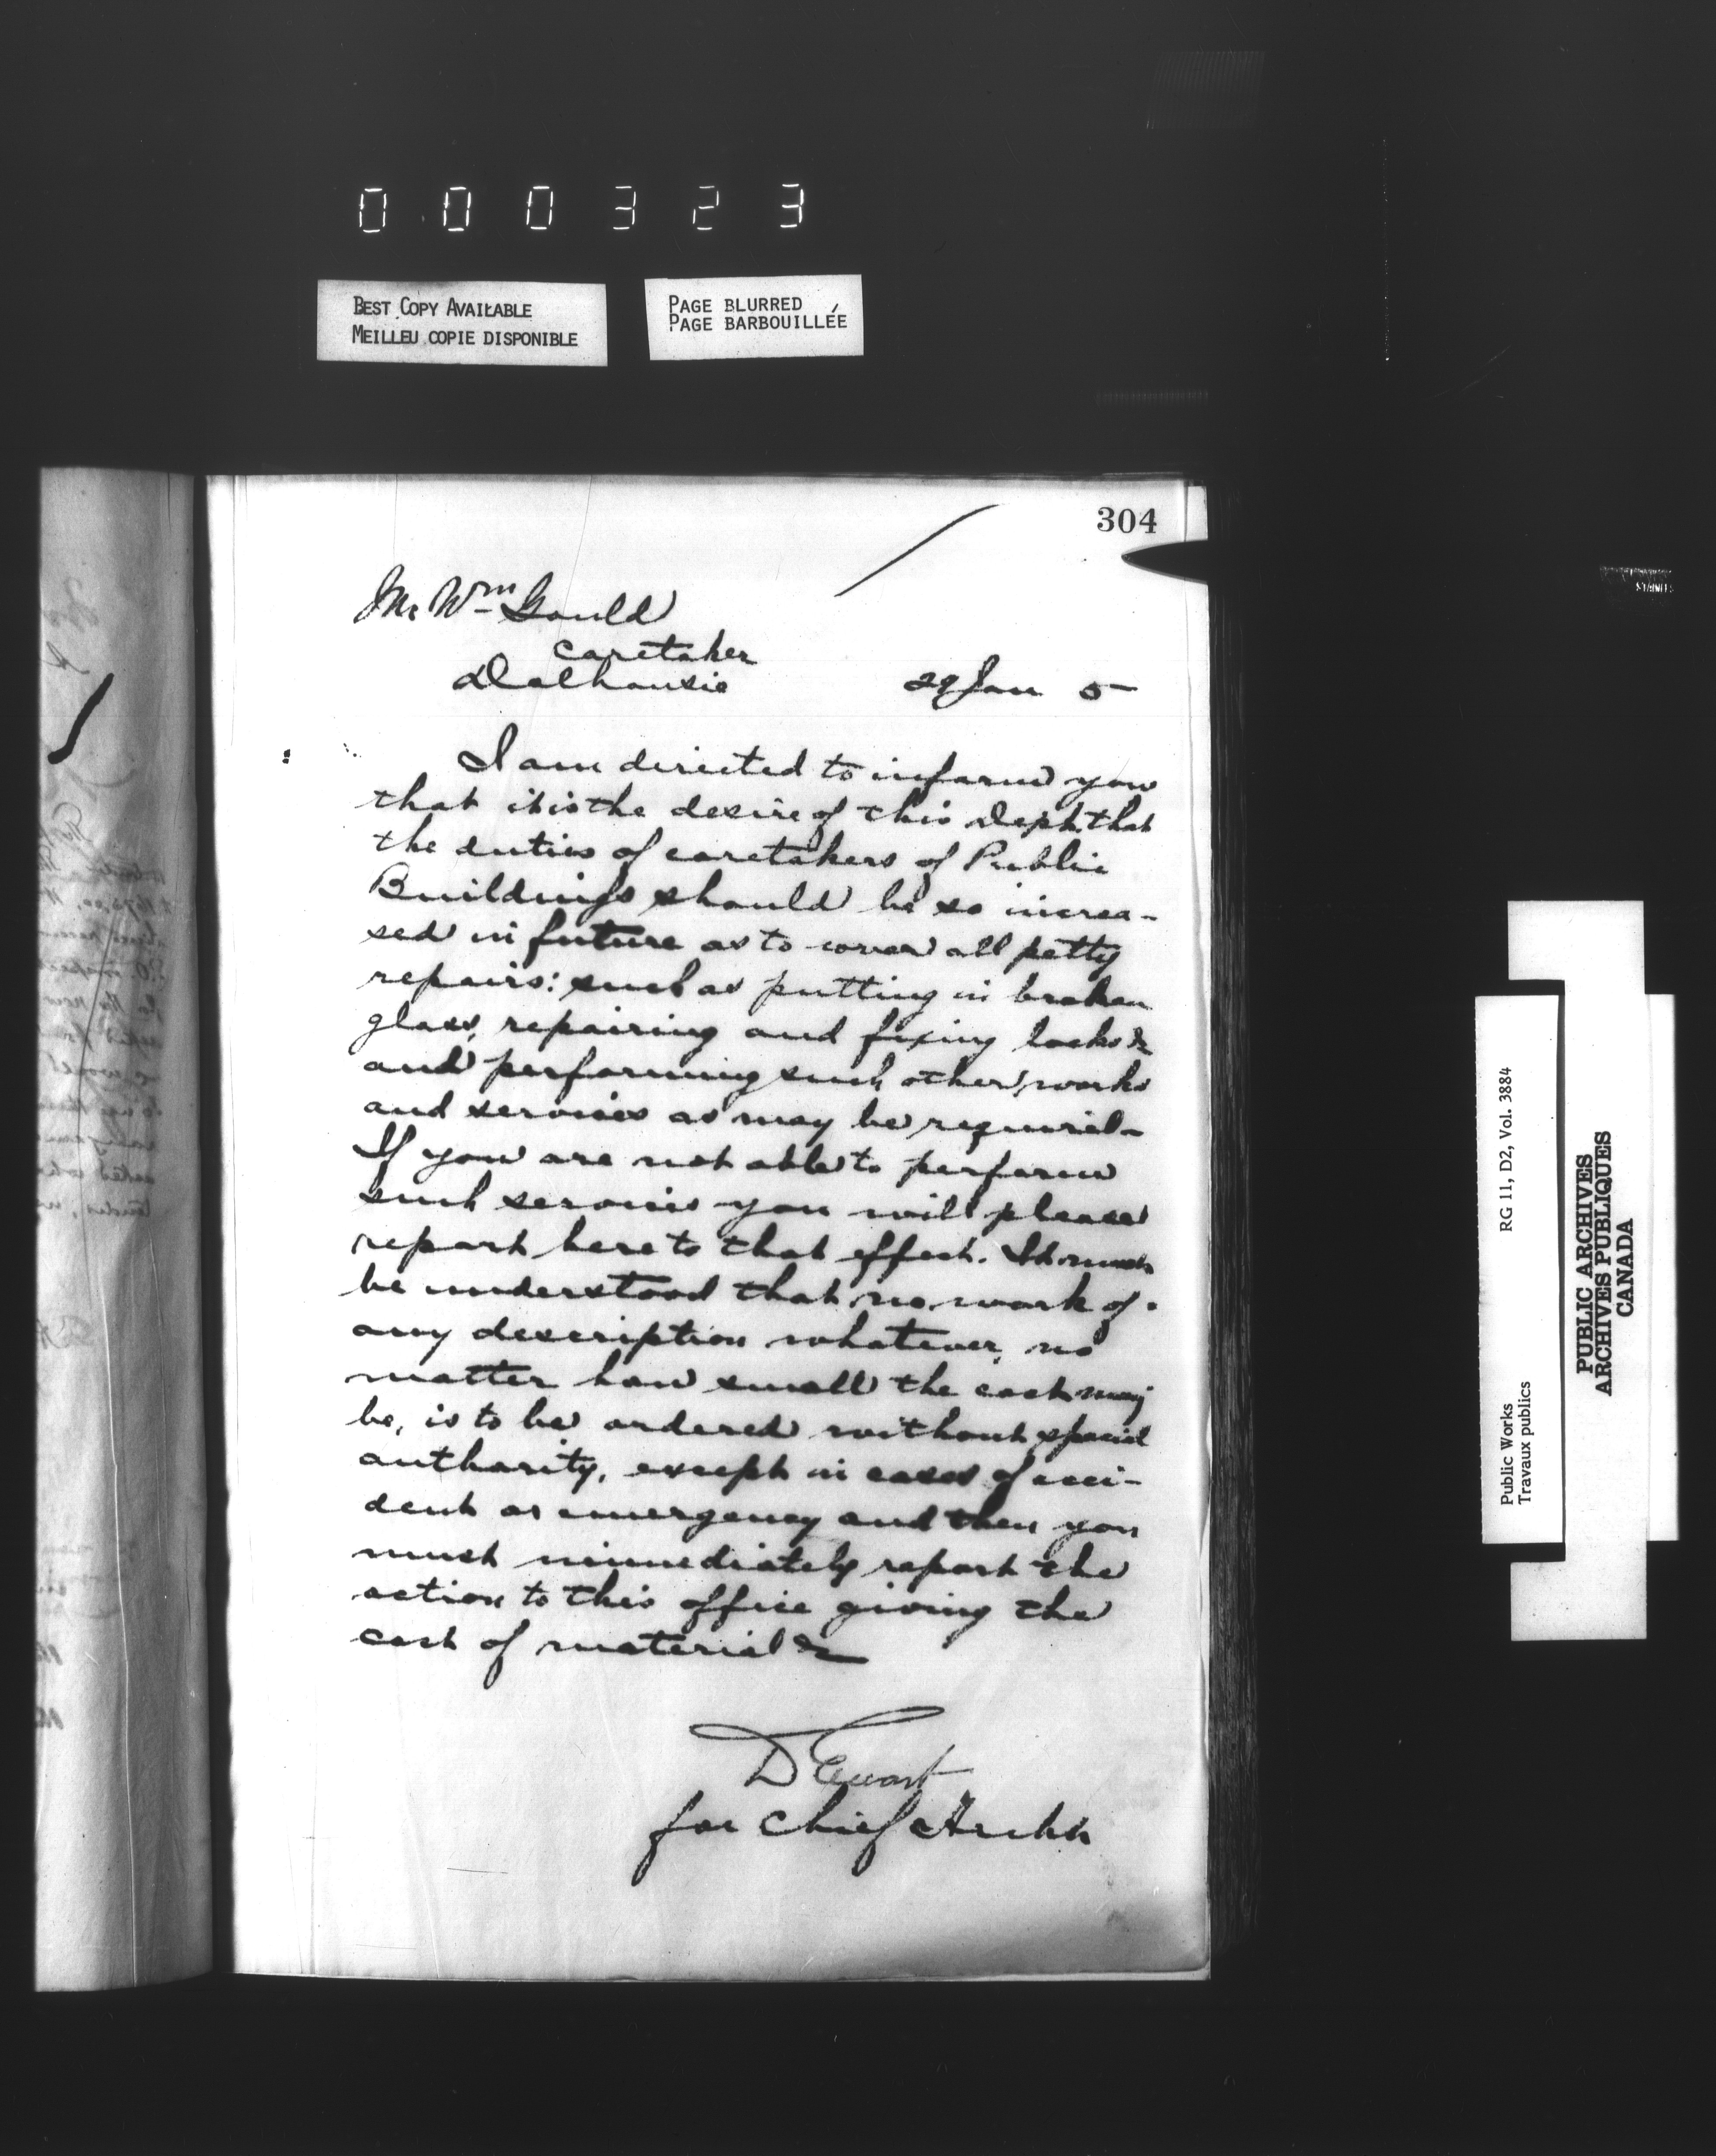 000323
BEST COPY AVAILABLE
MEILLEU COPIE DISPONIBLE
PAGE BLURRED
PAGE BARBOUILLÉE
304
Mr Wm Gould
Caretaker
Dalhousie 29 Jan 5
I am directed to inform you
that it is the desire of this Dept. that
the duties of caretakers of Public
Buildings should be so increa-
sed in future as to cover all petty
repairs: such as putting in broken
glass, repairing and fixing locks &
and performing such other works
and services as may be required-
If you are not able to perform
such services you will please
report here to that effect. It must
be understood that no work of
any description whatever, no
matter how small the cost may
be, is to be ordered without special
authority, except in cases of acci-
dent or emergency and then you
must immediately report the
action to this office giving the
cost of material &
D Ewart
for Chief Archt
Public Works
Travaux publics
RG 11, D2, Vol. 3884
PUBLIC ARCHIVES
ARCHIVES PUBLIQUES
CANADA